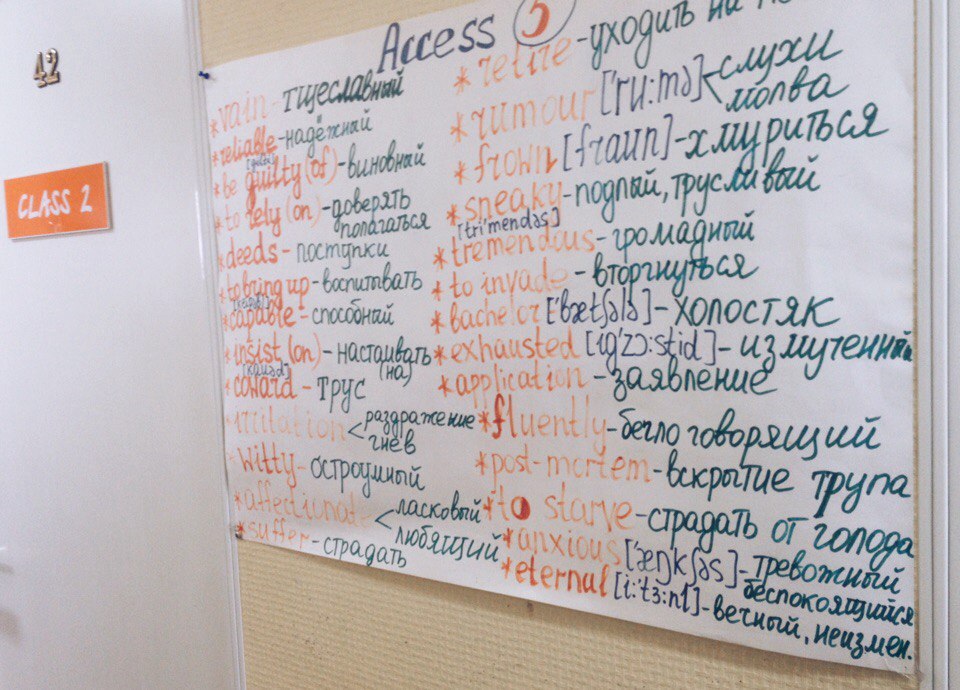 42
CLASS 2
Access 5
*vain - тщеславный
*reliable - надёжный
*be guilty (of) - виновный
*to rely (on) - доверять
полагаться
*deeds - поступки
*to bring up - воспитывать
*capable - способный
*insist (on) - настаивать
(на)
*coward - трус
*irritation < раздражение
гнев
*witty - остроумный
*affectionate < ласковый
любящий
*suffer - страдать
*retire - уходить на
*rumour ['ru:mə] < слухи
молва
*frown [fraun] - хмуриться
*sneaky - подлый, трусливый
[tri'mendəs]
*tremendous - громадный
*to invade - вторгнуться
*bachelor ['bætʃələ] - холостяк
*exhausted [ıg'zɔ:stid] - измученный
*application - заявление
*fluently - бегло говорящий
*post-mortem - вскрытие трупа
*to starve - страдать от голода
*anxious ['æŋkʃəs] - тревожный
беспокоящийся
*eternal [i:'tɜ:nl] - вечный, неизмен.